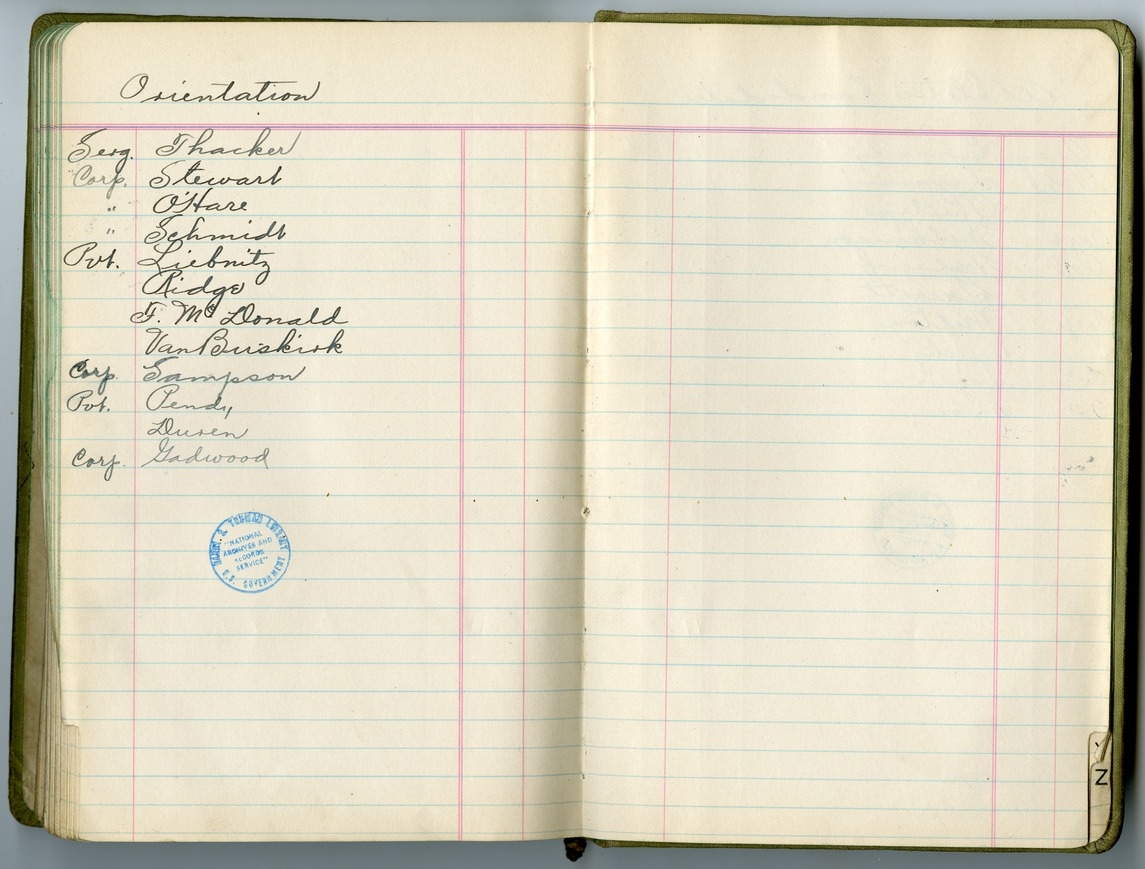 Orientation
Serg. Thacker
Corp. Stewart
" O'Hare
" Schmidt
Pvt. Liebnitz
Ridge
F. McDonald
VanBuskirk
Corp. Sampson
Pvt. Pendy
Duren
Corp. Gadwood
HARRY S. TRUMAN LIBRARY
"NATIONAL
ARCHIVES AND
RECORDS
SERVICE"
U.S. GOVERNMENT
Y
Z